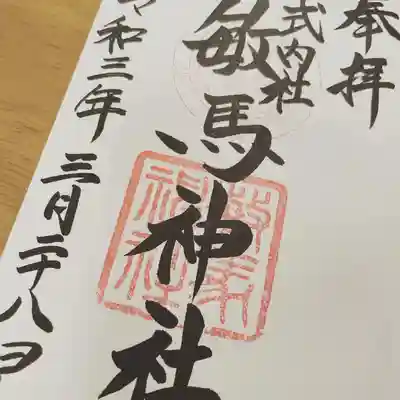 奉拝
式内社
敏馬神社
令和三年三月二十八日